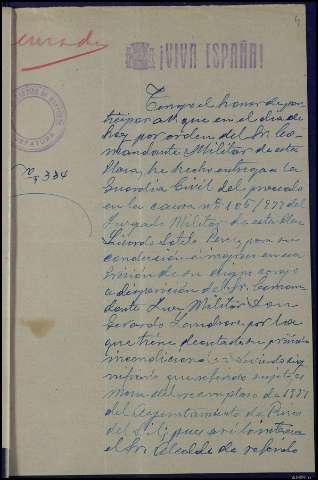 4
¡VIVA ESPAÑA!
Nº 334
Tengo el honor de par
ticipar a V. que en el día de
hoy por orden del Sr. Co
mandante Militar de esta
Plaza, he hecho entrega a la
Guardia Civil del procesado
en la causa nº 405/937 del
Juzgado Militar de esta Plaza
Sotelo Perez, para su
conducción é ingreso en esa
Prisión de su digno cargo
a disposición del Sr. Coman
dante Juez Militar Don
Gerardo por la
que tiene decretada su prisión
incondicional =
que referido sujeto es
reemplazo de 1931
del Ayuntamiento de
del Sil; pues
el Sr. Alcalde de referido